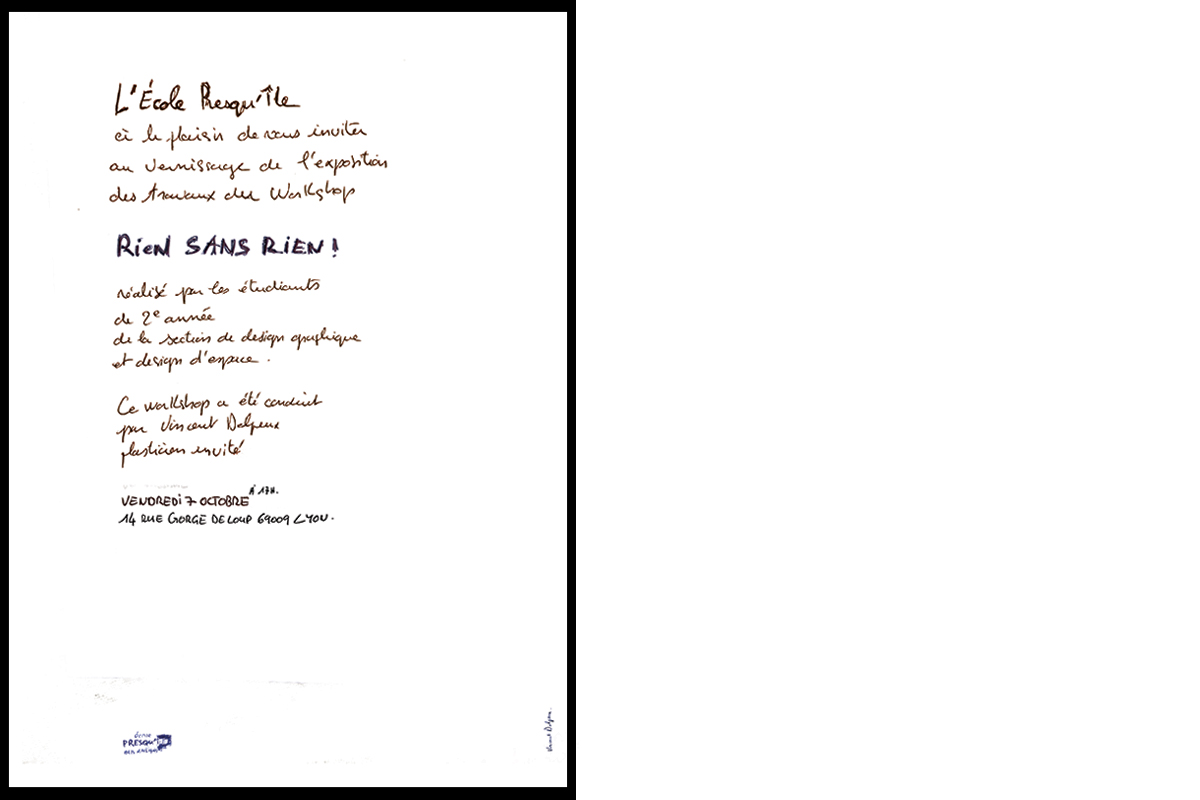 L'École Presqu'Île
à le plaisir de vous inviter
au vernissage de l'exposition
des travaux du Workshop
RieN SANS RiEN !
réalisé par les étudiants
de 2e année
de la section de design graphique
et design d'espace .
Ce workshop a été conduit
par Vincent Delpeux
plasticien invité
VENDREDi 7 OCTOBRE À 17H.
14 RUE GORGE DE LOUP 69009 LYON .
école
PRESQU'ÎLE
Vincent Delpeux